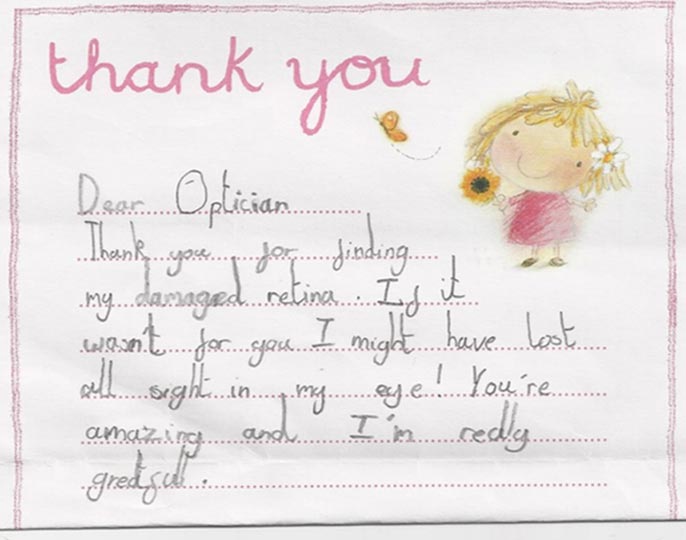 thank you
Dear Optician
Thank you for finding
my damaged retina. If it
wasn't for you I might have lost
all sight in my eye! You're
amazing and I'm really
greatful.